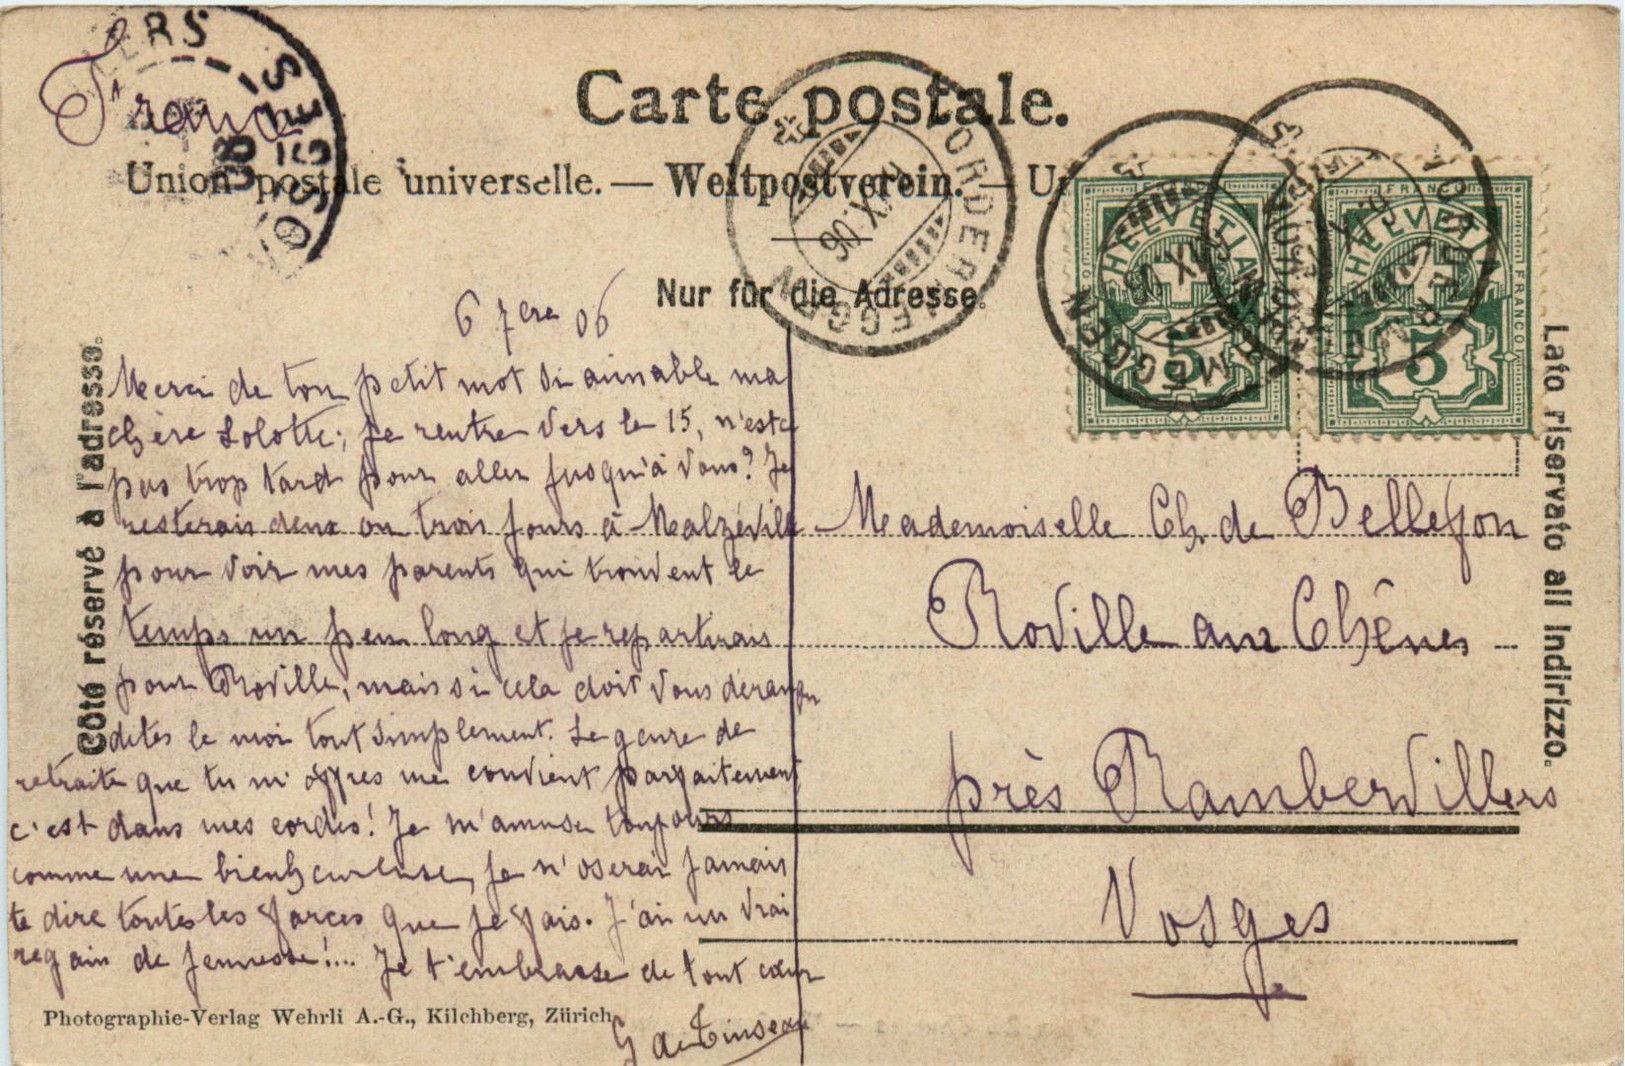 France
Carte postale.
Union postale universelle. — Weltpostverein. — U
Nur für die Adresse.
Côté réservé à l'adresse.
Lato riservato all Indirizzo.
6 7bre 06
Merci de ton petit mot si aimable ma
chère Lolotte; je rentre vers le 15, n'est ce
pas trop tard pour aller jusqu'à vous? Je
resterais deux ou trois jours à Malzéville
pour voir mes parents qui trouvent le
temps un peu long et je repartirais
pour Roville, mais si cela doit vous déranger
dites le moi tout simplement. Le genre de
retraite que tu m'offres me convient parfaitement,
c'est dans mes cordes! Je m'amuse toujours
comme une bienheureuse, je n'oserai jamais
te dire toutes les farces que je fais. J'ai un vrai
regain de jeunesse!... Je t'embrasse de tout cœur
G de Tinseau
Mademoiselle Ch. de Bellefon
Roville aux Chênes
près Rambervillers
Vosges
Photographie-Verlag Wehrli A.-G., Kilchberg, Zürich
VORDERMEGGEN
IX.06
VORDERMEGGEN
IX.06
VORDERMEGGEN
HELVETIA
FRANCO
5
HELVETIA
FRANCO
5
VOSGES